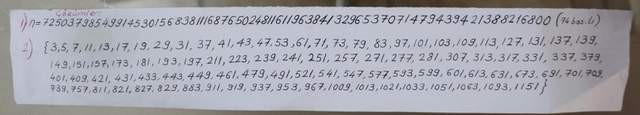 Çözümler
1) n=72503798549914530156838111687650248116119638413296537071479439421388216800 (74 bas.lı)
2) {3,5,7,11,13,17,19,29,31,37,41,43,47,53,61,71,73,79,83,97,101,103,109,113,127,131,137,139,
149,151,157,173,181,193,197,211,223,239,241,251,257,271,277,281,307,313,317,331,337,379,
401,409,421,431,433,443,449,461,479,491,521,541,547,577,593,599,601,613,631,673,691,701,709,
739,757,811,821,827,829,883,911,919,937,953,967,1009,1013,1021,1033,1051,1063,1093,1151}